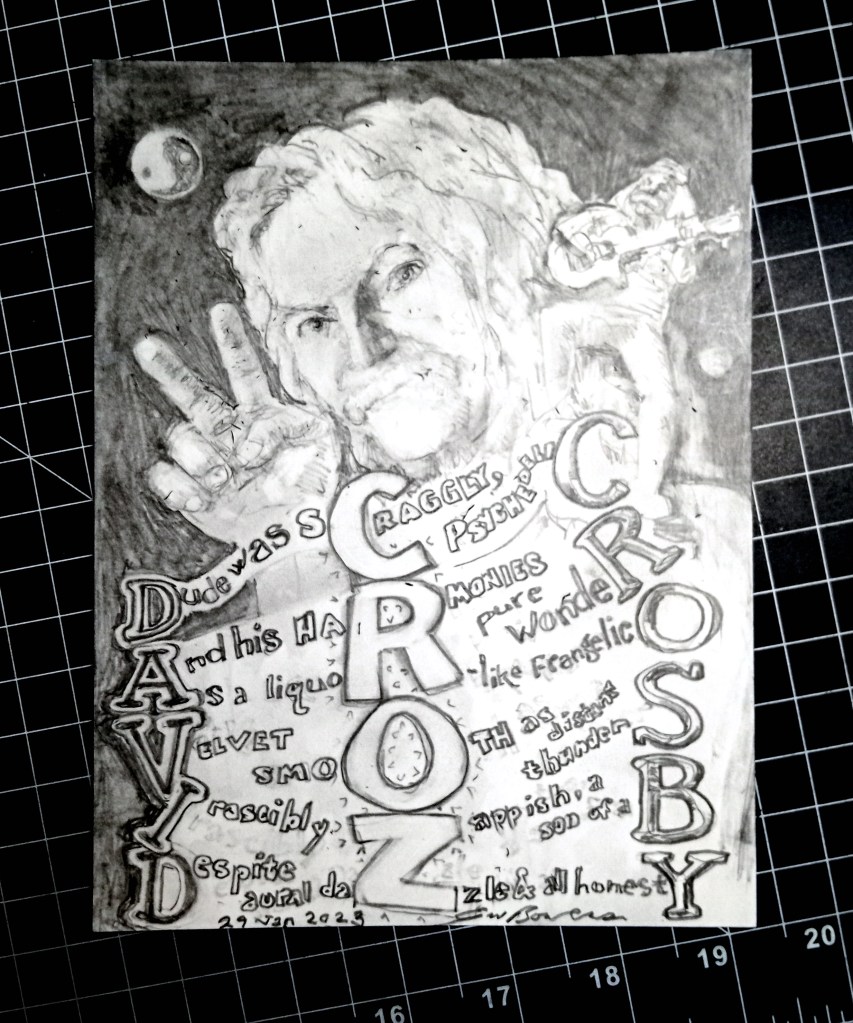 Dude was sCRAGGLY, PSYCHEDELIC
And his HARMONIES pure wondeR
As a liquoR-like FrangelicO
VELVET SMOOTH as distant thunderS
Irascibly, Zappish, a son of a B
Despite aural daZzle & all honestY
29 Jan 2023 EW Bowers
16 17 18 19 20